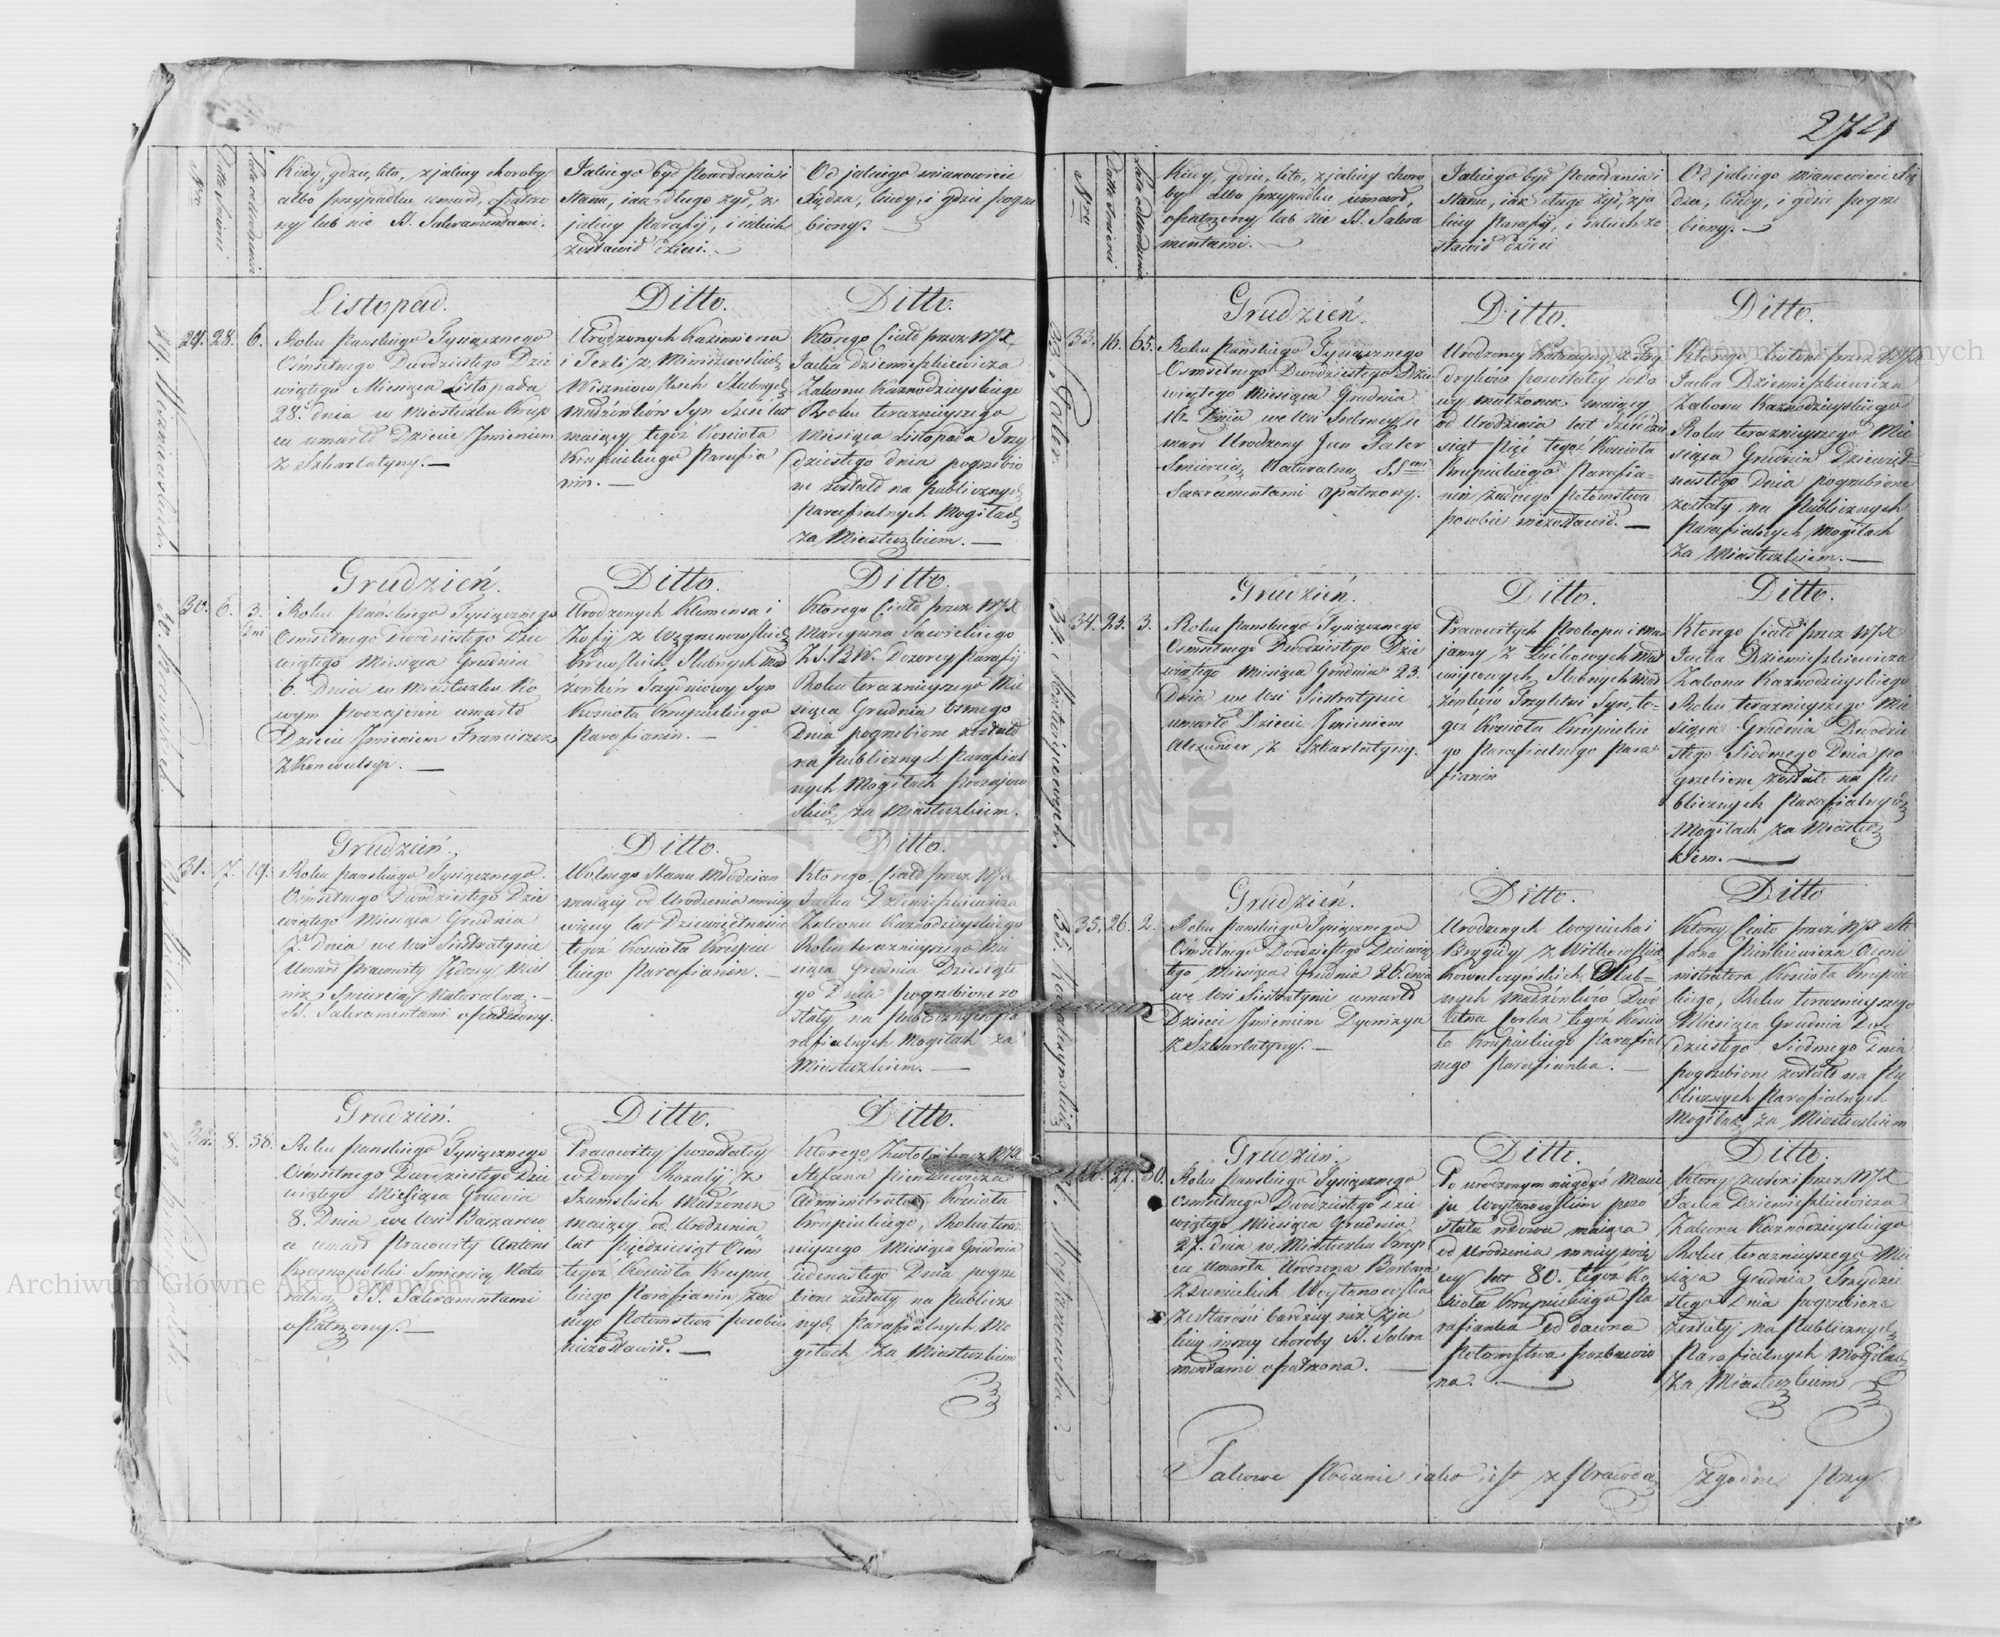 274
Nro
Data śmierci
Lata od urodzenia
Kiedy, gdzie, kto, z jakiey choroby
albo przypadku umarł, opatrzo
ny lub nie SS. Sakramentami.
Jakiego był powołania i
stanu, iak długo żył, z
jakiey Parafij, i iakich
zostawił dzieci.
Od jakiego mianowicie
Xiędza, kiedy, i gdzie pogrze
biony.
Listopad.
29. 28. 6.
Roku Pańskiego Tysiącznego
Ośmsetnego Dwudziestego Dzie
wiątego Miesiąca Listopada
28. dnia w Miasteczku Krup
cu umarło Dziecie Jmieniem
z Szkarlatyny.
Ditto.
Urodzonych Kazimierza
i Tekli z
Wiszniowskich Slubnych
małżonków Syn Sześć lat
maiący tegoż Kościoła
Krupieckiego Parafia
nin.
Ditto.
Ktorego Ciało przez WJX
Jacka Dziemieszkiewicza
Zakonu Kaznodzieyskiego
Roku teraznieyszego
Miesiąca Listopada Trzy
dziestego dnia pogrzebio
ne zostało na publicznych
Parafialnych Mogiłach
za Miasteczkiem.
Grudzień.
30. 6. 3. Dni
Roku Pańskiego Tysiącznego
Ośmsetnego Dwudziestego Dzie
wiątego Miesiąca Grudnia
6. Dnia w Miasteczku No
wym Poczajowie umarło
Dziecie Jmieniem Franciszek
z Konwulsyi.
Ditto.
Urodzonych Klemensa i
Zofij z
Slubnych Mał
żonków Trzydniowy Syn
Kościoła Krupieckiego
Parafianin.
Ditto.
Ktorego Ciało przez WJX
Sawickiego
Dozorcy Parafij
Roku teraznieyszego Mie
siąca Grudnia Osmego
Dnia pogrzebione zostało
na publicznych Parafial
nych Mogiłach Poczajow
skich za Miasteczkiem.
Grudzień.
31. 7. 19.
Roku Pańskiego Tysiącznego
Ośmsetnego Dwudziestego Dzie
wiątego Miesiąca Grudnia
7. dnia we wsi Siestratynie
Umarł Pracowity Jędrzey Miel
nik Smiercią Naturalną.
SS. Sakramentami opatrzony.
Ditto.
Wolnego Stanu Młodzian
maiący od Urodzenia mniey
wiecey lat Dziewiętnaście
tegoż Kościoła Krupie
ckiego Parafianin.
Ditto.
Ktorego Ciało przez WJX
Jacka Dziemieszkiewicza
Zakonu Kaznodzieyskiego
Roku teraznieyszego Mie
siąca Grudnia Dziesiąte
go Dnia pogrzebione zo
stały na Publicznych Pa
rafialnych Mogiłach za
Miasteczkiem.
Grudzień.
32. 8. 58.
Roku Pańskiego Tysiącznego
Ośmsetnego Dwudziestego Dzie
wiątego Miesiąca Grudnia
8. Dnia we Wsi Baszarow
ce umarł Pracowity Antoni
Krasnopolski Smiercią Natu
ralną SS. Sakramentami
opatrzony.
Ditto.
Pracowitey pozostałey
wdowy Rozalij z
Szumskich Małżonek
maiący od Urodzenia
lat Pięćdziesiąt Ośm
tegoż Kościoła Krupie
ckiego Parafianin żad
nego Potomstwa posobie
niezostawił.
Ditto.
Ktorego Zwłoki przez WJX
Stefana Pienkiewicza
Administratora Kościoła
Krupieckiego, Roku tera
znieyszego Miesiąca Grudnia
iedenastego Dnia pogrze
bione zostały na Publicz
nych Parafialnych Mo
giłach za Miasteczkiem
Nro
Data śmierci
Lata od urodzenia
Kiedy, gdzie, kto, z jakiey choro
by albo przypadku umarł,
opatrzony lub nie SS. Sakra
mentami.
Jakiego był powołania i
stanu, iak długo żył, z ja
kiey Parafij, i iakich zo
stawił dzieci
Od jakiego mianowicie Xię
dza, kiedy, i gdzie pogrze
biony.
Grudzień.
33. 16. 65.
Roku Pańskiego Tysiącznego
Ośmsetnego Dwudziestego Dzie
wiątego Miesiąca Grudnia
16. Dnia we wsi
marł Urodzony Jan Pater
Smiercią Naturalną SS.
Sakramentami opatrzony.
Ditto.
Urodzoney Katarzyny z
pozostałey wdo
wy małżonek maiący
od Urodzenia lat Sześćdzie
siąt Pięć tegoż Kościoła
Krupieckiego Parafia=
nin żadnego potomstwa
posobie niezostawił.
Ditto.
Ktorego Zwłoki przez WJX
Jacka Dziemieszkiewicza
Zakonu Kaznodzieyskiego
Roku teraznieyszego Mie
siąca Grudnia Dziewięt=
nastego Dnia pogrzebione
zostały na Publicznych
Parafialnych Mogiłach
za Miasteczkiem.
Grudzień.
34. 23. 3.
Roku Pańskiego Tysiącznego
Ośmsetnego Dwudziestego Dzie
wiątego Miesiąca Grudnia 23.
Dnia we Wsi Siestratynie
umarło Dziecie Jmieniem
Alexander z Szkarlatyny.
Ditto.
Pracowitych Prokopa i Mar
janny z
Slubnych Mał
żonków Trzyletni Syn, te=
goż Kościoła Krupieckie
go Parafialnego Para=
fianin
Ditto.
Ktorego Ciało przez WJX
Jacka Dziemieszkiewicza
Zakonu Kaznodzieyskiego
Roku teraznieyszego Mie
siąca Grudnia Dwudzie
stego Siodmego Dnia po
grzebione zostało na Pu
blicznych Parafialnych
Mogiłach za Miastecz
kiem.
Grudzień.
35. 26. 2.
Roku Pańskiego Tysiącznego
Ośmsetnego Dwudziestego Dziewią
tego Miesiąca Grudnia 26. dnia
we Wsi Siestratynie umarło
Dziecie Jmieniem Dyonizya
z Szkarlatyny.
Ditto.
Urodzonych Woyciecha i
Brygidy z Witkowskich
Kowalczyńskich Slub=
nych małżonków Dwó
letna Corka tegoż Kościo
ła Krupieckiego Parafial
nego Parafianka.
Ditto
Ktorey Ciało przez WJX Ste
fana Pienkiewicza Admi
nistratora Kościoła Krupie
ckiego, Roku teraznieyszego
Miesiąca Grudnia Dwu
dziestego Siodmego Dnia
pogrzebione zostało na Pu
blicznych Parafialnych
Mogiłach za Miasteczkiem
Grudzień.
27. 80.
Roku Pańskiego Tysiącznego
Ośmsetnego Dwudziestego Dzie
wiątego Miesiąca Grudnia
27. dnia w Miasteczku Krup
cu Umarła Urodzona Barbara
Woytanowska
ze Starości bardziey niż z ja
kiey inszey choroby SS. Sakra
mentami opatrzona.
Ditto.
Po urodzonym niegdyś Macie
ju Woytanowskim pozo
stała wdowa maiąca
od Urodzenia mniey wię
cey lat 80. tegoż Ko
ścioła Krupieckiego Pa
rafianka od dawna
Potomstwa pozbawio
na.
Ditto.
Ktorey zwłoki przez WJX
Jacka Dziemieszkiewicza
Zakonu Kaznodzieyskiego
Roku teraznieyszego Mie
siąca Grudnia Trzydzie
stego Dnia pogrzebione
zostały na Publicznych
Parafialnych Mogiłach
za Miasteczkiem
Takowe Podanie iako iest z Prawdą zgodne przy
29. Wiszniowskich.
33. Pater.
35. Kowalczyńskich
Woytanowska.
Archiwum Główne Akt Dawnych
Archiwum Główne Akt Dawnych